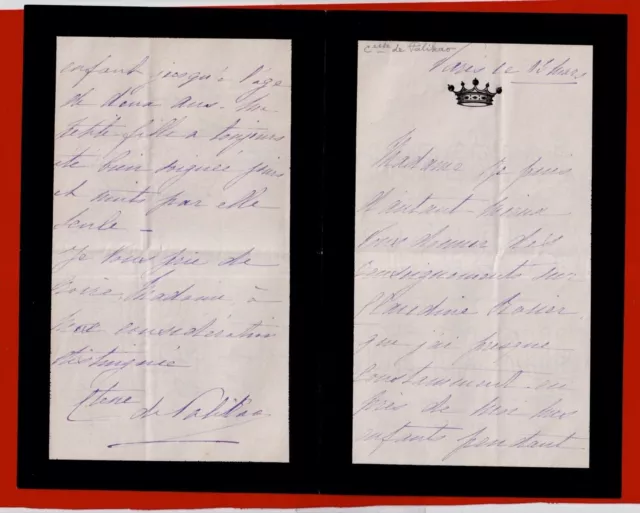 Ctesse de Palikao
Paris le 13 mars
Madame je puis
d'autant mieux
vous donner des
renseignements sur
Claudine
que j'ai
constamment eu
près de moi mes
enfants pendant
enfant jusqu'à l'age
de deux ans. Ma
petite-fille a toujours
été bien soignée jours
et nuits par elle
seule -
Je vous prie de
croire, Madame à
ma considération
distinguée
Ctesse
de Palikao